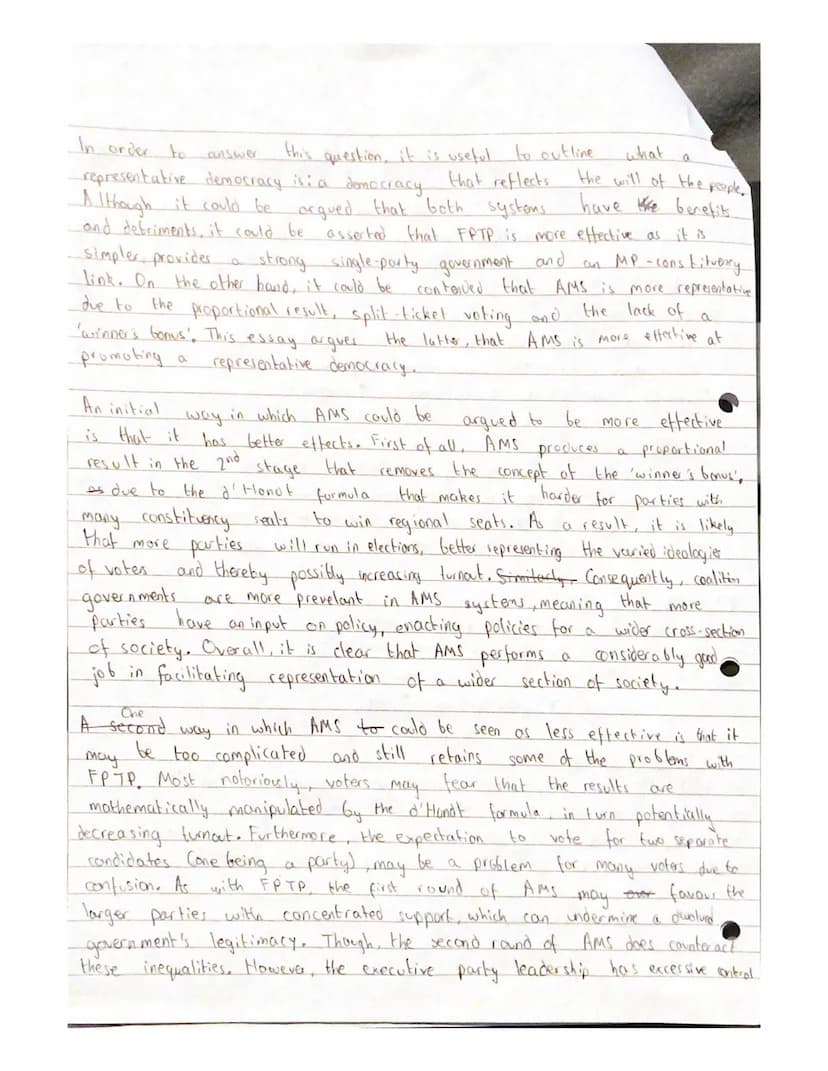 In order to answer this question, it is useful to outline what a
representative democracy is: a democracy that reflects the will of the people.
Although it could be argued that both systems have the benefits
and detriments, it could be asserted that FPTP is more effective as it is
simpler, provides a strong single-party government and an MP-constituency
link. On the other hand, it could be contended that AMS is more representative
due to the proportional result, split-ticket voting and the lack of a
'winner's bonus'. This essay argues the latter, that AMS is more effective at
promoting a representative democracy.
An initial way in which AMS could be argued to be more effective
is that it has better effects. First of all, AMS produces a proportional
result in the 2nd stage that removes the concept of the 'winner's bonus',
as due to the d'Hondt formula that makes it harder for parties with
many constituency seats to win regional seats. As a result, it is likely
that more parties will run in elections, better representing the varied ideologies
of votes and thereby possibly increasing turnout. Similarly, Consequently, coalition
governments are more prevelant in AMS systems, meaning that more
parties have an input on policy, enacting policies for a wider cross-section
of society. Overall, it is clear that AMS performs a considerably good
job in facilitating representation of a wider section of society.
A second One way in which AMS to could be seen as less effective is that it
may be too complicated and still retains some of the problems with
FPTP. Most notoriously, voters may fear that the results are
mathematically manipulated by the d'Hondt formula, in turn potentially
decreasing turnout. Furthermore, the expectation to vote for two separate
candidates (one being a party), may be a problem for many voters due to
confusion. As with FPTP, the first round of AMS may favour the
larger parties with concentrated support, which can undermine a devolved
government's legitimacy. Though, the second round of AMS does counteract
these inequalities. However, the executive party leadership has excessive control